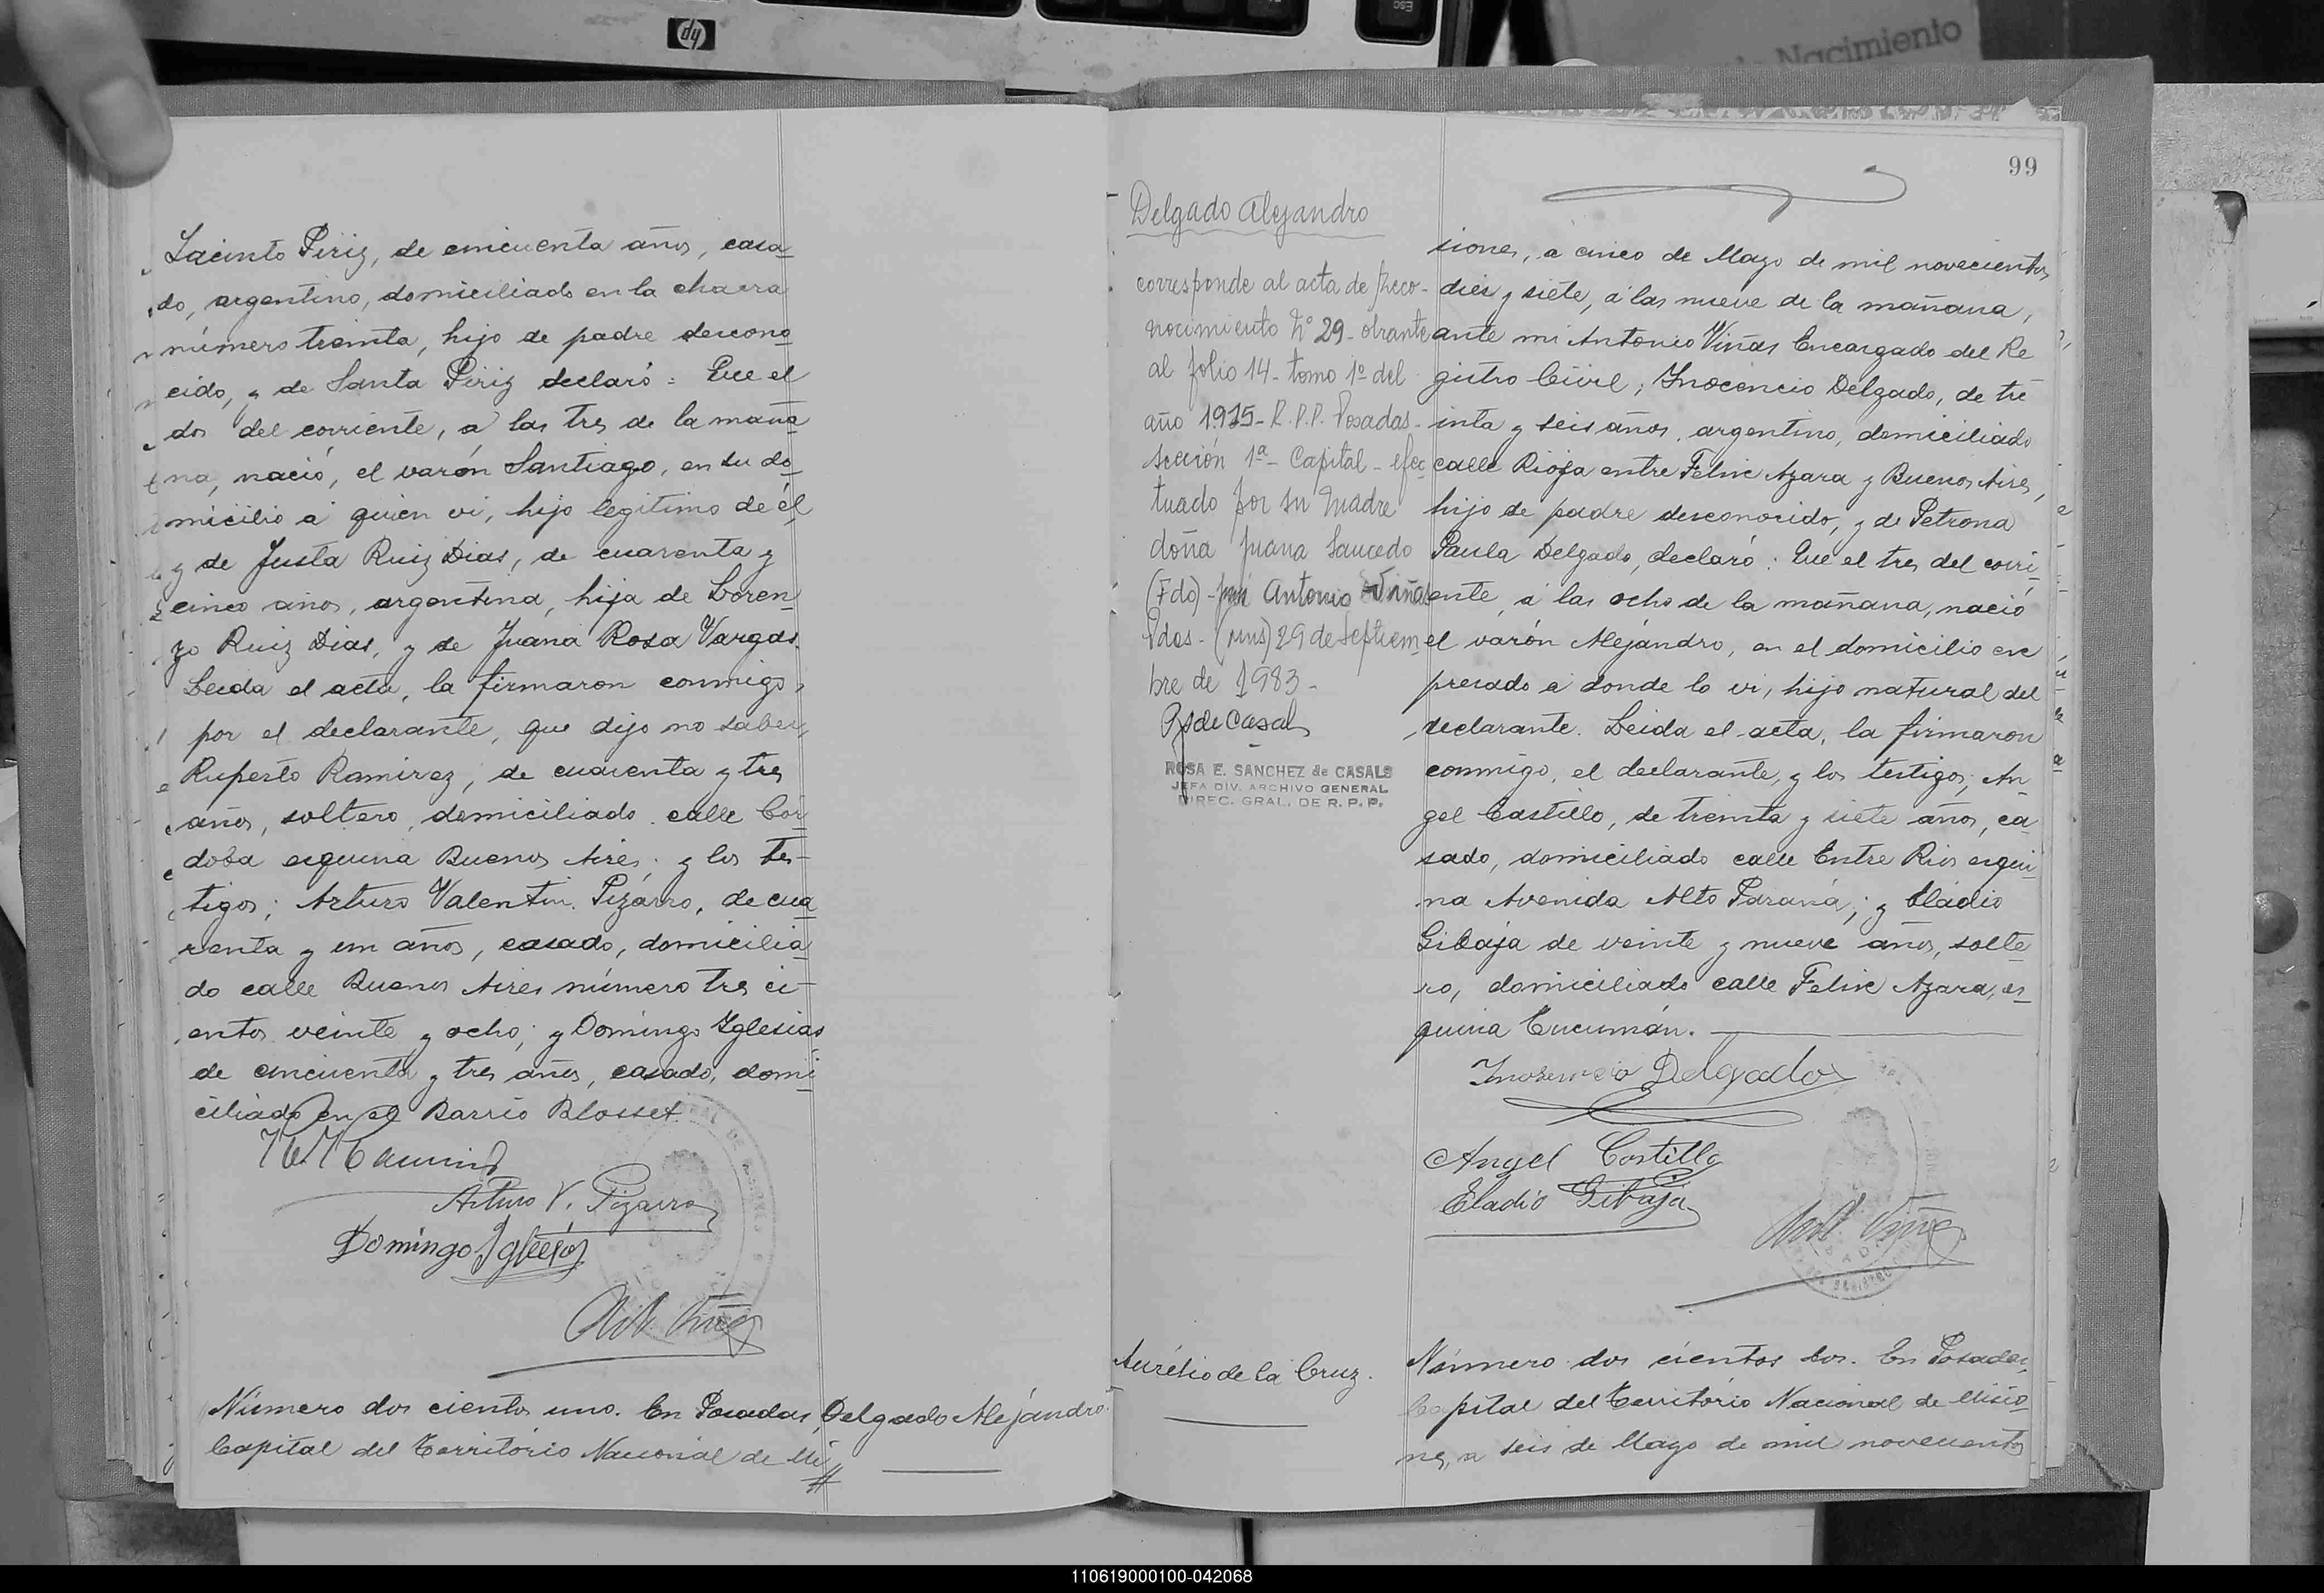 hp
esc
Nacimiento
99
Jacinto Piriz, de cincuenta años, casa
do, argentino, domiciliado en la chacra
número treinta, hijo de padre descono
cido, y de Santa Piriz declaró: Que el
dos del corriente, a las tres de la maña
na, nació, el varón Santiago, en su do
micilio a quien vi, hijo legitimo de él,
y de Justa Ruiz Dias, de cuarenta y
cinco años, argentina, hija de Loren
zo Ruiz Dias, y de Juana Rosa Vargas.
Leida el acta, la firmaron conmigo,
por el declarante, que dijo no saber,
Ruperto Ramirez, de cuarenta y tres
años, soltero, domiciliado calle Cór
doba esquina Buenos Aires; y los tes-
tigos; Arturo Valentin Pizarro, de cua
renta y un años, casado, domicilia
do calle Buenos Aires número tres ci-
entos veinte y ocho; y Domingo Iglesias
de cincuenta y tres años, casado, domi
ciliado en el Barrio Blosset.
Arturo V. Pizarro
Domingo Iglesias
Ant. Viñas
Número dos cientos uno. En Posadas,
Capital del Territorio Nacional de Mi
Delgado Alejandro.
Delgado Alejandro
corresponde al acta de Reco-
nocimiento Nº 29 - obrante
al folio 14 - tomo 1º del
año 1935 - R.P.P. Posadas -
Sección 1ª - Capital - efec
tuado por su madre
doña Juana Saucedo
(Fdo) - Antonio Viñas
Pdas - (Mns) 29 de Septiem
bre de 1983 -
RSdeCasals
ROSA E. SANCHEZ de CASALS
JEFA DIV. ARCHIVO GENERAL
DIREC. GRAL. DE R. P. P.
siones, a cinco de Mayo de mil novecientos
dies y siete, a las nueve de la mañana,
ante mi Antonio Viñas Encargado del Re
gistro Civil; Inocencio Delgado, de tre
inta y seis años, argentino, domiciliado
calle Rioja entre Felix Azara y Buenos Aires,
hijo de padre desconocido, y de Petrona
Paula Delgado, declaró: Que el tres del corri
ente, a las ocho de la mañana, nació
el varón Alejandro, en el domicilio ex
presado a donde lo vi, hijo natural del
declarante. Leida el acta, la firmaron
conmigo, el declarante, y los testigos; An
gel Castillo, de treinta y siete años, ca
sado, domiciliado calle Entre Rios esqui
na Avenida Alto Paraná; y Eladio
Gibaja de veinte y nueve años, solte
ro, domiciliado calle Felix Azara, es
quina Tucumán.
Inosencio Delgado
Angel Castillo
Eladio Gibaja
Ant. Viñas
Aurelio de la Cruz.
Número dos cientos dos. En Posadas,
Capital del Territorio Nacional de Misio
nes, a seis de Mayo de mil novecientos
110619000100-042068